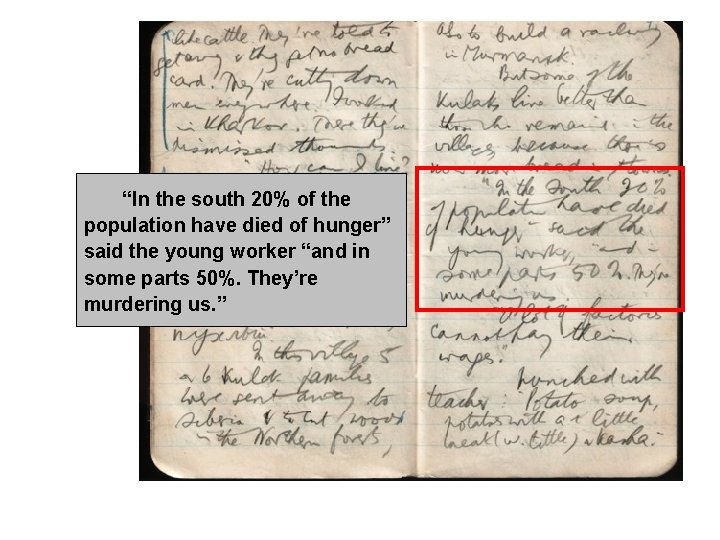 like cattle. They've told to
get away & they get no bread
card. They're cutting down
men everywhere. I worked
in Kharkov. There they've
dismissed thousands.
"How can I live?"
“In the south 20% of the
population have died of hunger”
said the young worker “and in
some parts 50%. They’re
murdering us. ”
In this village 5
or 6 Kulak families
were sent away to
Siberia & to cut wood
in the Northern forests,
also to build a railway
in Murmansk.
But some of the
Kulaks live better than
those who remain in the
village, because there's
now more bread in towns.
"In the South 20%
of population have died
of hunger" said the
young worker, "and in
some parts 50%. They're
murdering us."
"A lot of factories
cannot pay their
wages."
Lunched with
teacher: Potato soup,
potatoes with a little
meat (v. little) & kasha.